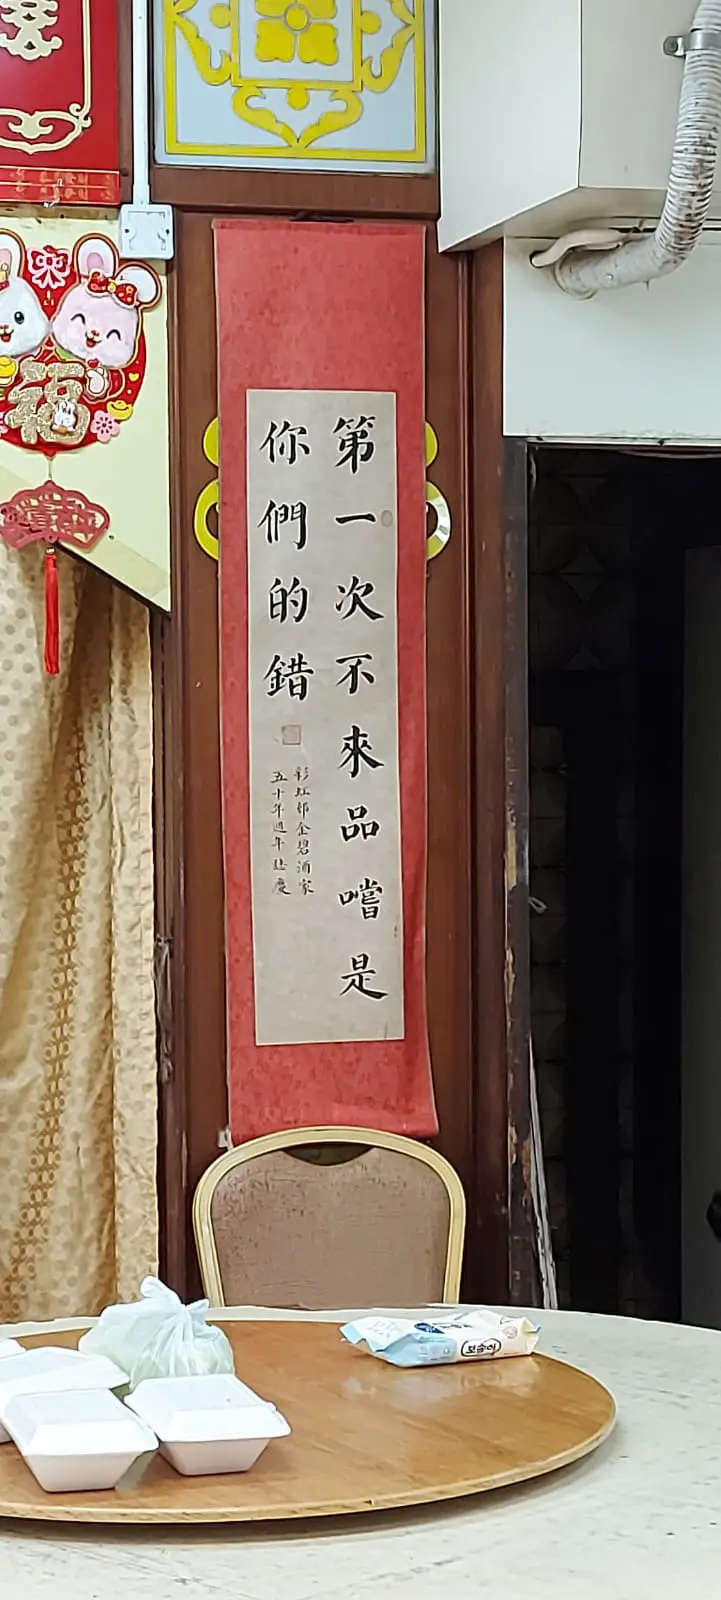 第一次不來品嚐是
你們的錯
彩虹邨金碧酒家
五十年週年誌慶
福
보솜이